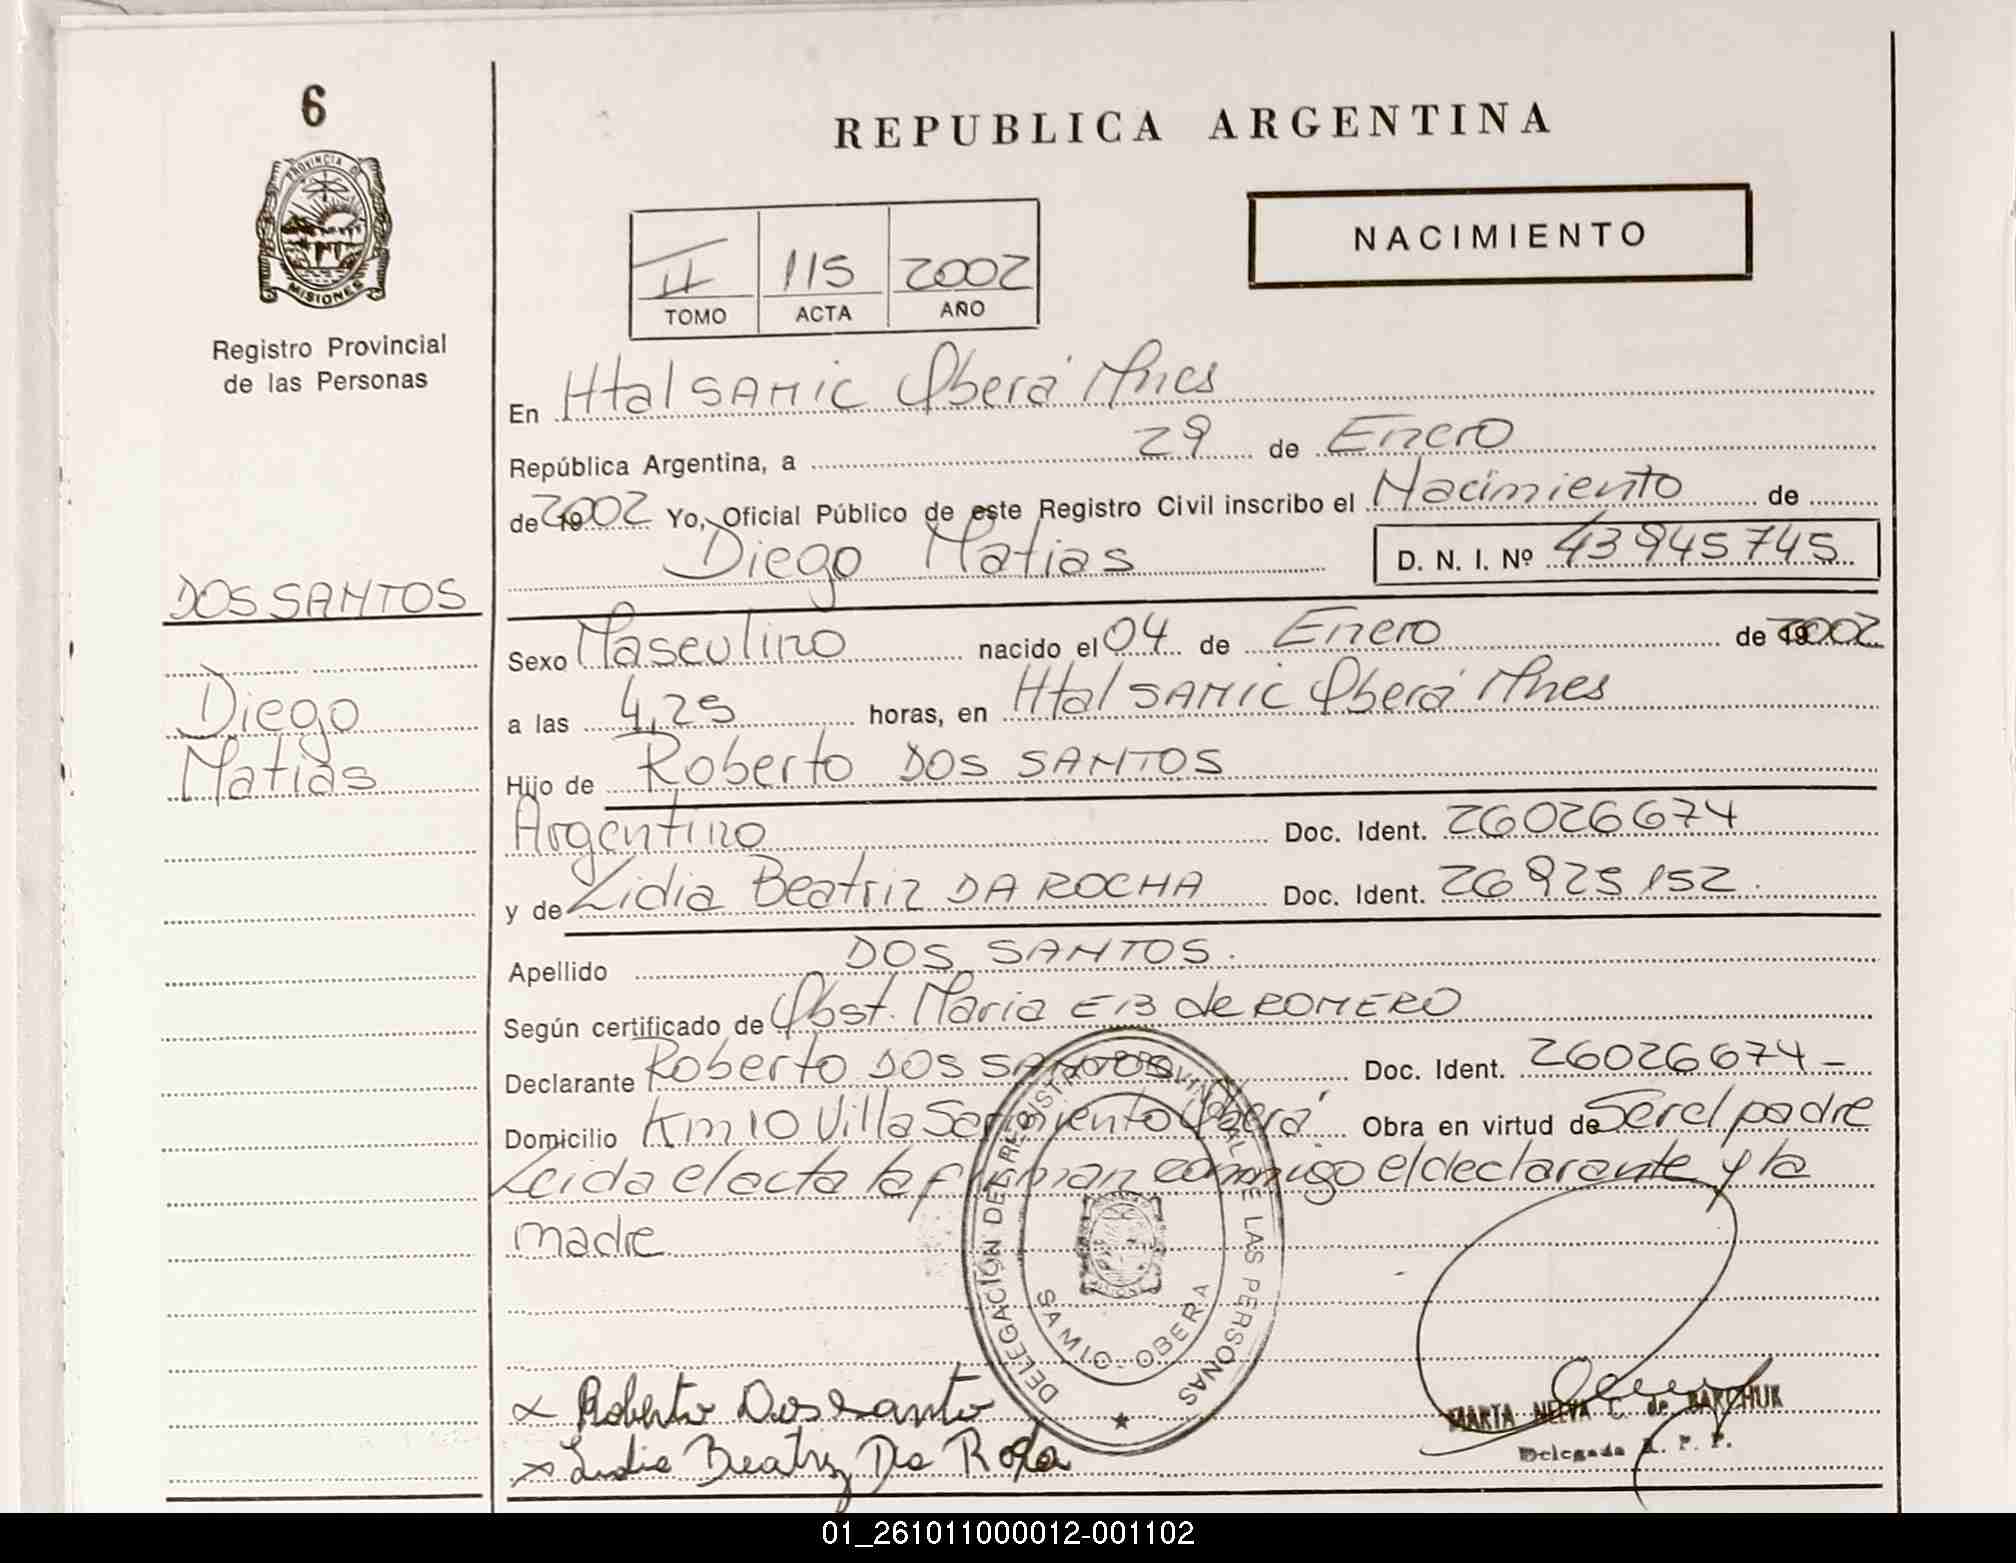 6
PROVINCIA DE
MISIONES
Registro Provincial
de las Personas
DOS SANTOS
Diego
Matias
REPUBLICA ARGENTINA
II 115 2002
TOMO ACTA AÑO
NACIMIENTO
En Htal SAMIC Oberá Mnes
República Argentina, a 29 de Enero
de 2002 Yo, Oficial Público de este Registro Civil inscribo el Nacimiento de
Diego Matias D. N. I. Nº 43945745
Sexo Masculino nacido el 04 de Enero de 2002
a las 4,25 horas, en Htal SAMIC Oberá Mnes
Hijo de Roberto DOS SANTOS
Argentino Doc. Ident. 26026674
y de Lidia Beatriz DA ROCHA Doc. Ident. 26925152.
Apellido DOS SANTOS.
Según certificado de Obst. Maria E B de ROMERO
Declarante Roberto DOS SANTOS Doc. Ident. 26026674-
Domicilio Km 10 Villa Sarmiento Oberá Obra en virtud de Ser el padre
Leida el acta la firman conmigo el declarante y la
madre
DELEGACIÓN DEL REGISTRO PROVINCIAL DE LAS PERSONAS
SAMIC - OBERA
x Roberto Dossanto
x Lidia Beatriz Da Rocha
MARTA NELVA C. de BARCHUK
Delegada R. P. P.
01_261011000012-001102